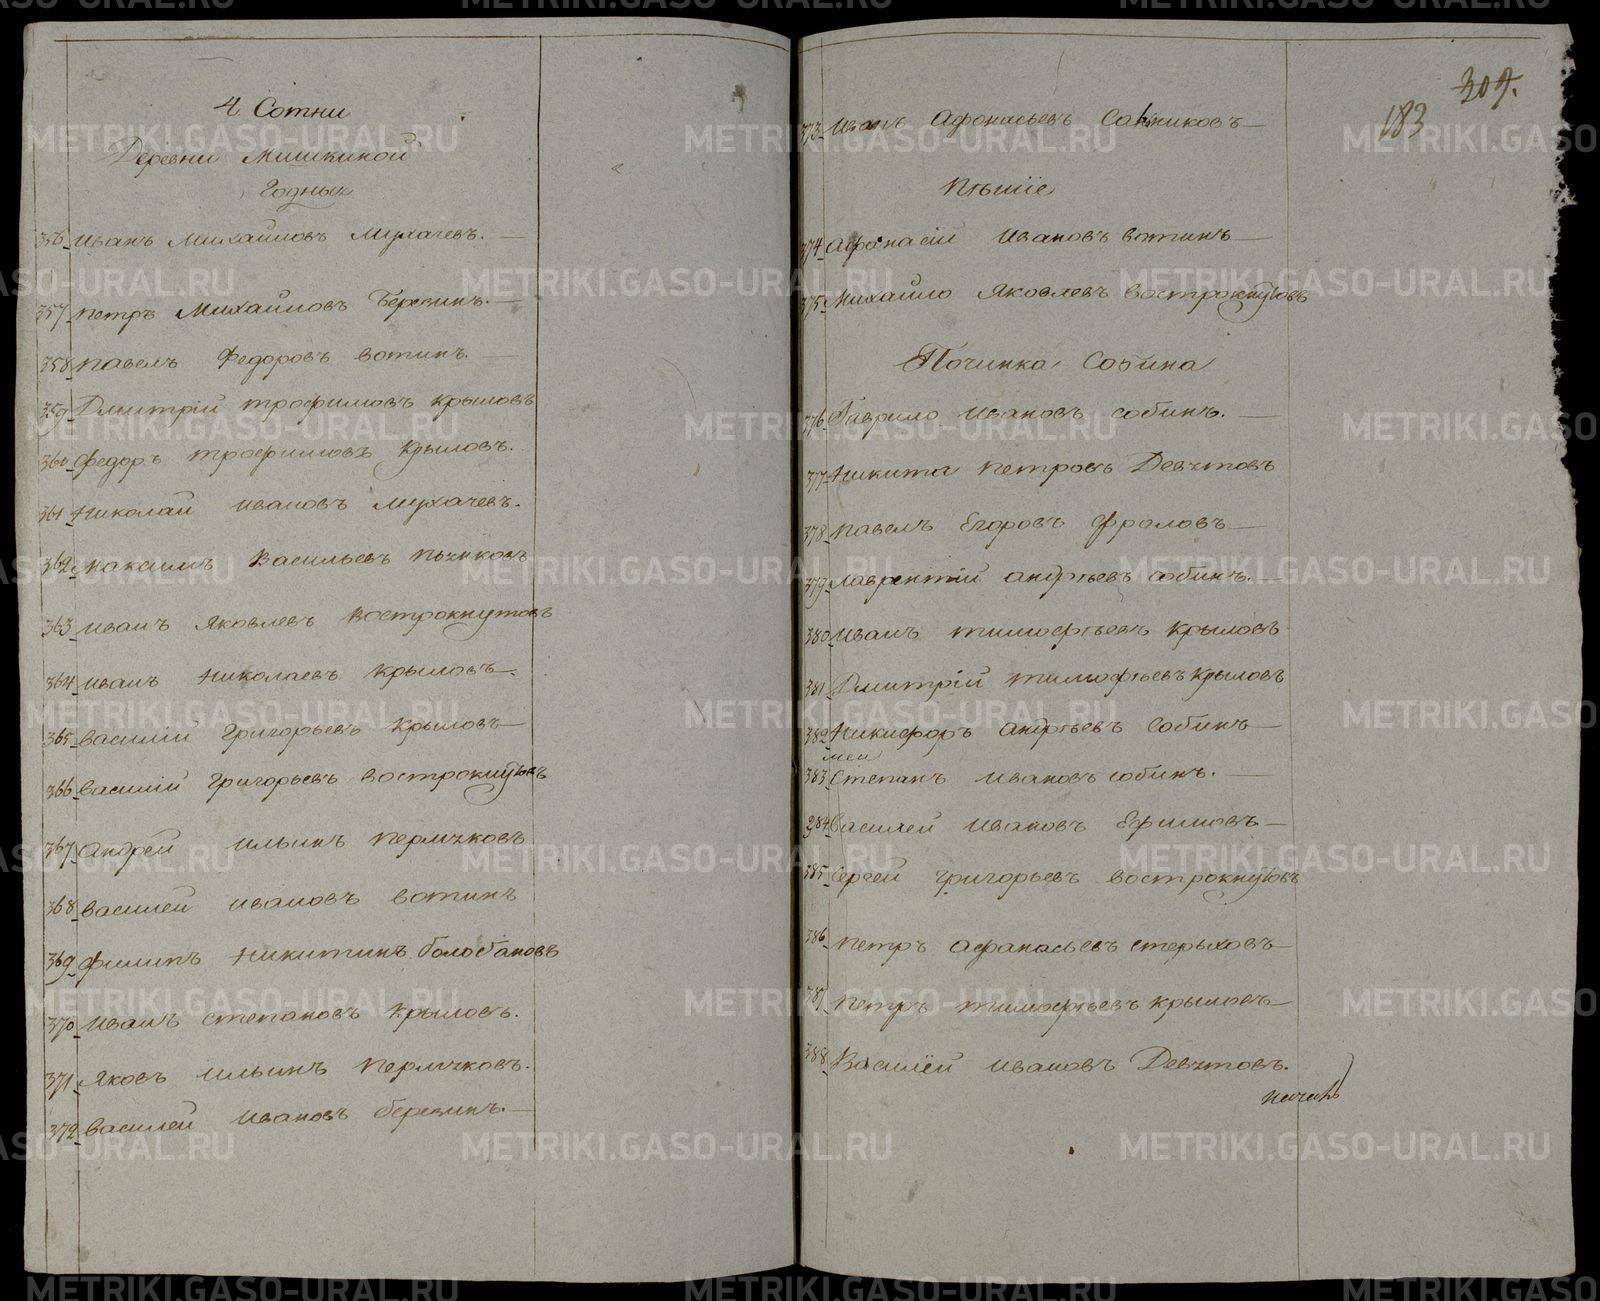 4. Сотни
Деревни Мишкиной
Годных
356 Иванъ Михайловъ Мухачевъ.
357 Петръ Михайловъ Березинъ.
358 Павелъ Федоровъ Вотинъ.
359 Дмитрій Трофимовъ Крыловъ
360 Федоръ Трофимовъ Крыловъ.
361 Николай Ивановъ Мухачевъ.
362 Максимъ Васильевъ
363 Иванъ Яковлевъ Вострокнутовъ
364 Иванъ Николаевъ Крыловъ.
365 Василій Григорьевъ Крыловъ
366 Василій Григорьевъ Вострокнутовъ
367 Андрей Ильинъ Пермяковъ
368 Василей Ивановъ Вотинъ
369 Филипъ Никитинъ Болобановъ
370 Иванъ Степановъ Крыловъ.
371 Яковъ Ильинъ Пермяковъ.
372 Василей Ивановъ Березинъ.
309.
183
373 Иванъ Афонасьевъ
Пѣшіе
374 Афонасій Ивановъ Вотинъ
375 Михайло Яковлевъ Вострокнутовъ
Починка Собина
376 Гаврило Ивановъ Собинъ.
377 Никита Петровъ Девятовъ
378 Павелъ Егоровъ Фроловъ
379 Лаврентій Андрѣевъ Собинъ.
380 Иванъ Тимофѣевъ Крыловъ
381 Дмитрій Тимофѣевъ Крыловъ
382 Никифоръ Андрѣевъ Собинъ
383 Степанъ Ивановъ Собинъ.
384 Василей Ивановъ Ефимовъ
385 Сергей Григорьевъ Вострокнутовъ
386 Петръ Афанасьевъ Стерховъ
387 Петръ Тимофѣевъ Крыловъ
388 Василей Ивановъ Девятовъ.
METRIKI.GASO-URAL.RU